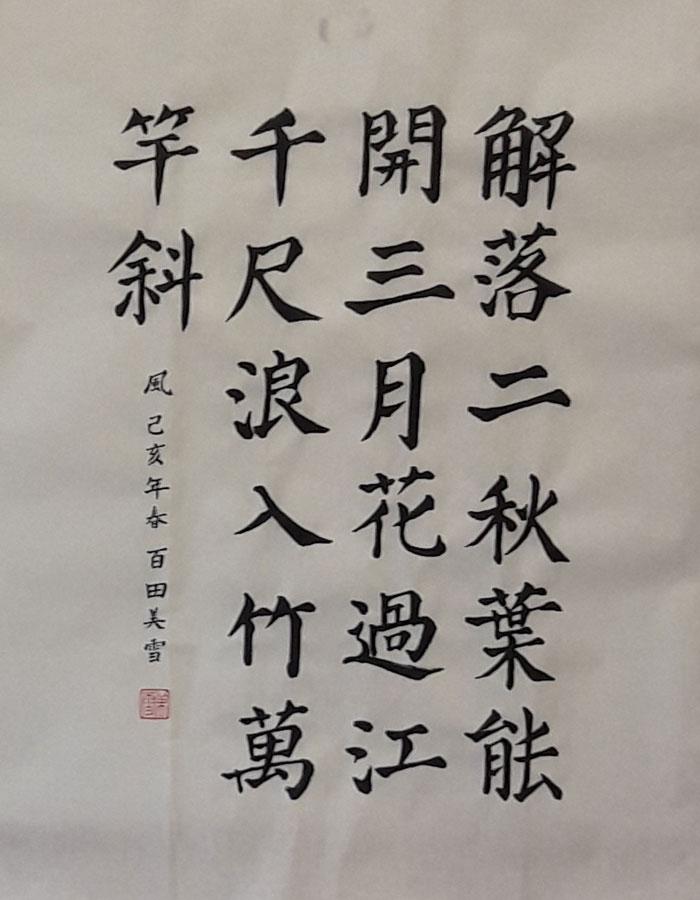 解落二秋葉能
開三月花過江
千尺浪入竹萬
竿斜
風 己亥年春 百田美雪